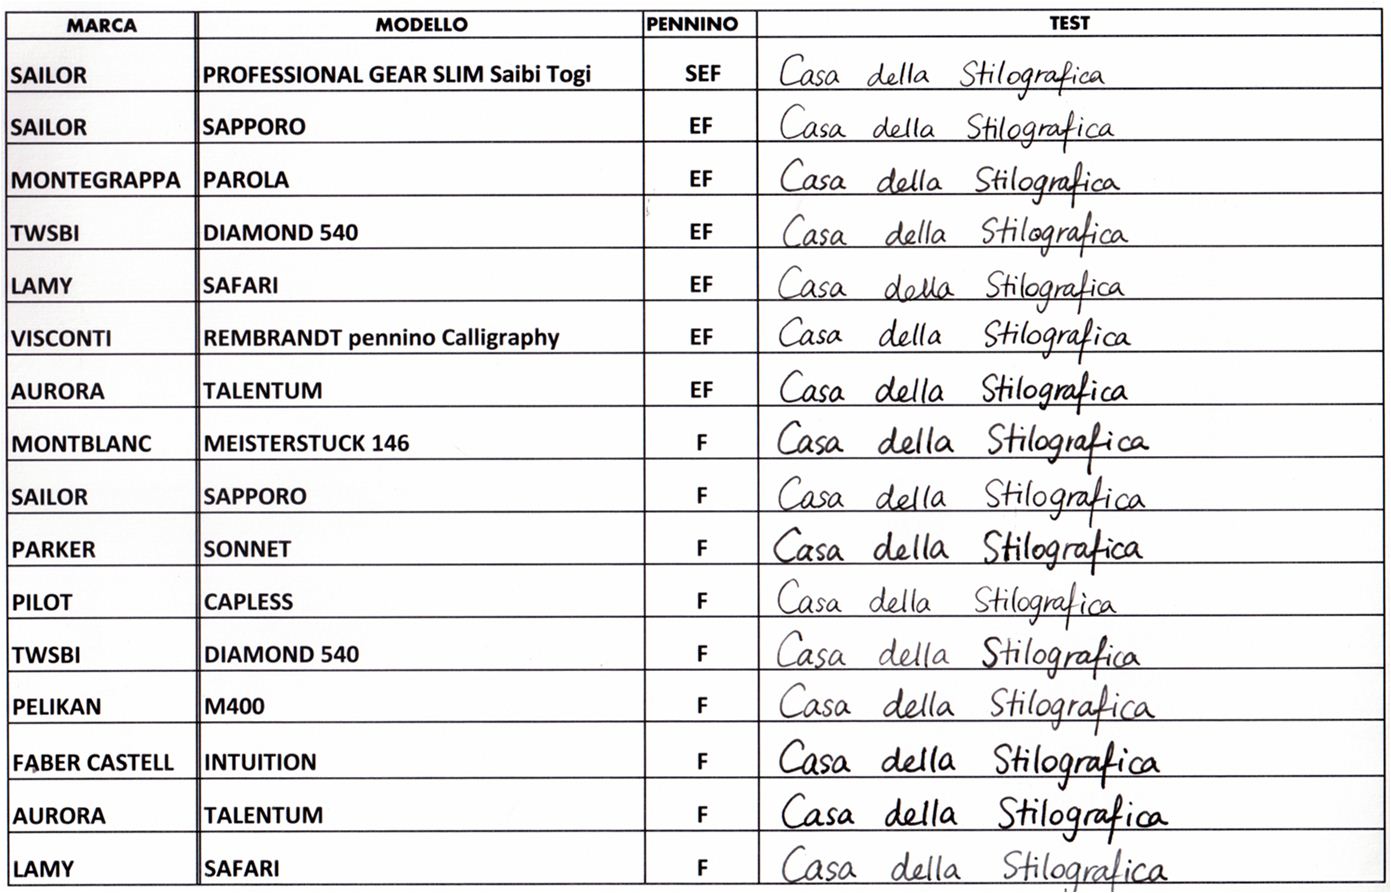 MARCA MODELLO PENNINO TEST
SAILOR PROFESSIONAL GEAR SLIM Saibi Togi SEF Casa della Stilografica
SAILOR SAPPORO EF Casa della Stilografica
MONTEGRAPPA PAROLA EF Casa della Stilografica
TWSBI DIAMOND 540 EF Casa della Stilografica
LAMY SAFARI EF Casa della Stilografica
VISCONTI REMBRANDT pennino Calligraphy EF Casa della Stilografica
AURORA TALENTUM EF Casa della Stilografica
MONTBLANC MEISTERSTUCK 146 F Casa della Stilografica
SAILOR SAPPORO F Casa della Stilografica
PARKER SONNET F Casa della Stilografica
PILOT CAPLESS F Casa della Stilografica
TWSBI DIAMOND 540 F Casa della Stilografica
PELIKAN M400 F Casa della Stilografica
FABER CASTELL INTUITION F Casa della Stilografica
AURORA TALENTUM F Casa della Stilografica
LAMY SAFARI F Casa della Stilografica